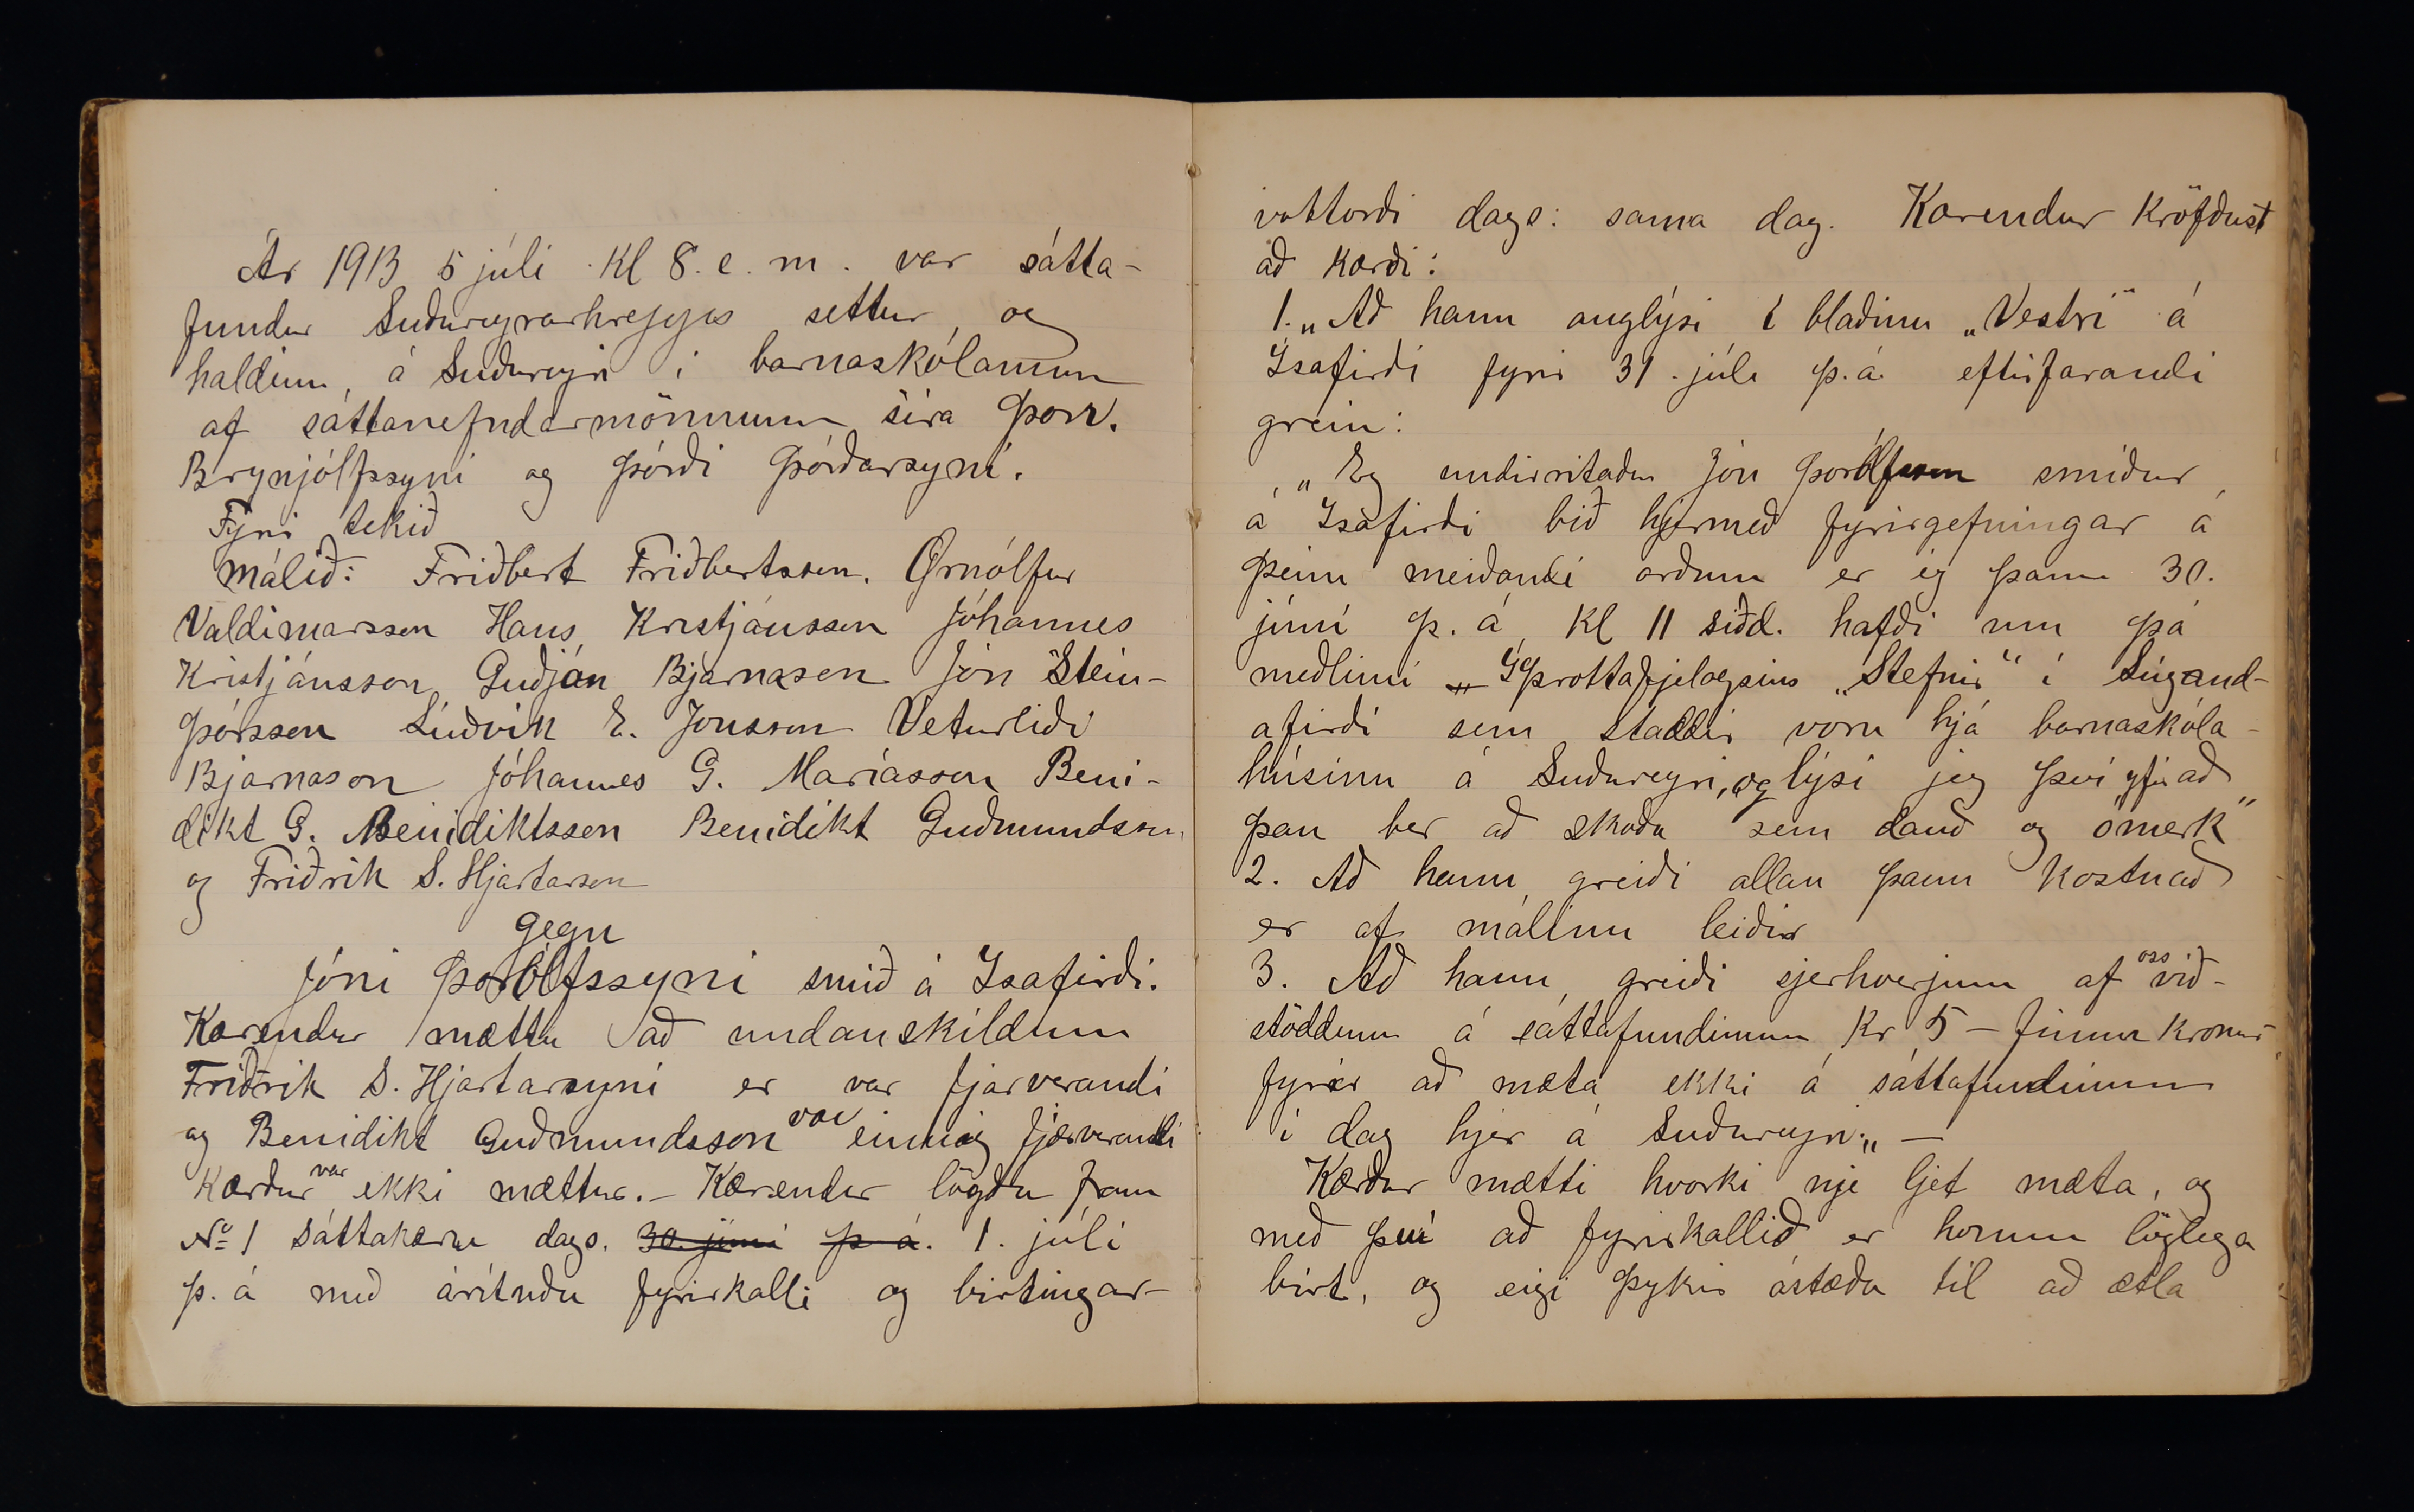 Ár 1913 5 júli Kl 8. e. m. var sátta-
fundur Suðureyrarhrepps settur og
haldinn, á Suðureyri i barnaskólanum
af sáttanefndarmönnum sira Þorv.
Brynjólfssyni og Þórði Þórðarsyni.
Fyrir tekið
málið: Friðbert Friðbertsson. Örnólfur
Valdimarsson Hans Kristjánsson Jóhannes
Kristjánsson Guðján Bjarnason Jón Stein-
þórsson Lúðvik E. Jónsson Veturliði
Bjarnason Jóhannes G. Maríasson Beni-
dikt G. Benidiktsson Benidikt Guðmundsson
og Friðrik S. Hjartarson
gegn
Jóni Þorólfssyni smið á Ísafirði.
Kærendur mættu að undanskildum
Friðrik S. Hjartarsyni er var fjarverandi
og Benidikt Guðmundsson var einnig fjærverandi
Kærður var ekki mættur. – Kærendur lögðu fram
No 1 Sáttakæru dags. 30. júni þ á. 1. júli
þ. á með árituðu fyrirkalli og birtingar-
vottorði dags: sama dag. Kærendur kröfðust
að kærði:
1. „Að hann auglýsi í blaðinu „Vestri" á
Ísafirði fyrir 31. júlí þ.á. eftirfarandi
grein:
„Eg undirritaður Jón Þorólfsson smiður
á Ísafirði bið hjermeð fyrirgefningar á
þeim meiðandi orðum er eg þann 30.
júní þ. á, Kl 11 siðd. hafði um þá
meðlimi „Íþróttafjelagsins „Stefnir" í Súgand-
afirði sem staddir voru hjá barnaskóla-
húsinu á Suðureyri, og lýsi jeg því yfir að
þau ber að skoða sem dauð og ómerk"
2. Að hann greiði allan þann kostnað
er af málinu leiðir
3. Að hann greiði sjerhverjum af oss við-
stöddum á sáttafundinum Kr 5 – fimm krónur
fyrir að mæta ekki á sáttafundinum
í dag hjer á Suðureyri„ –
Kærður mætti hvorki nje ljet mæta, og
með því að fyrirkallið er honum löglega
birt, og eigi þykir ástæða til að ætla